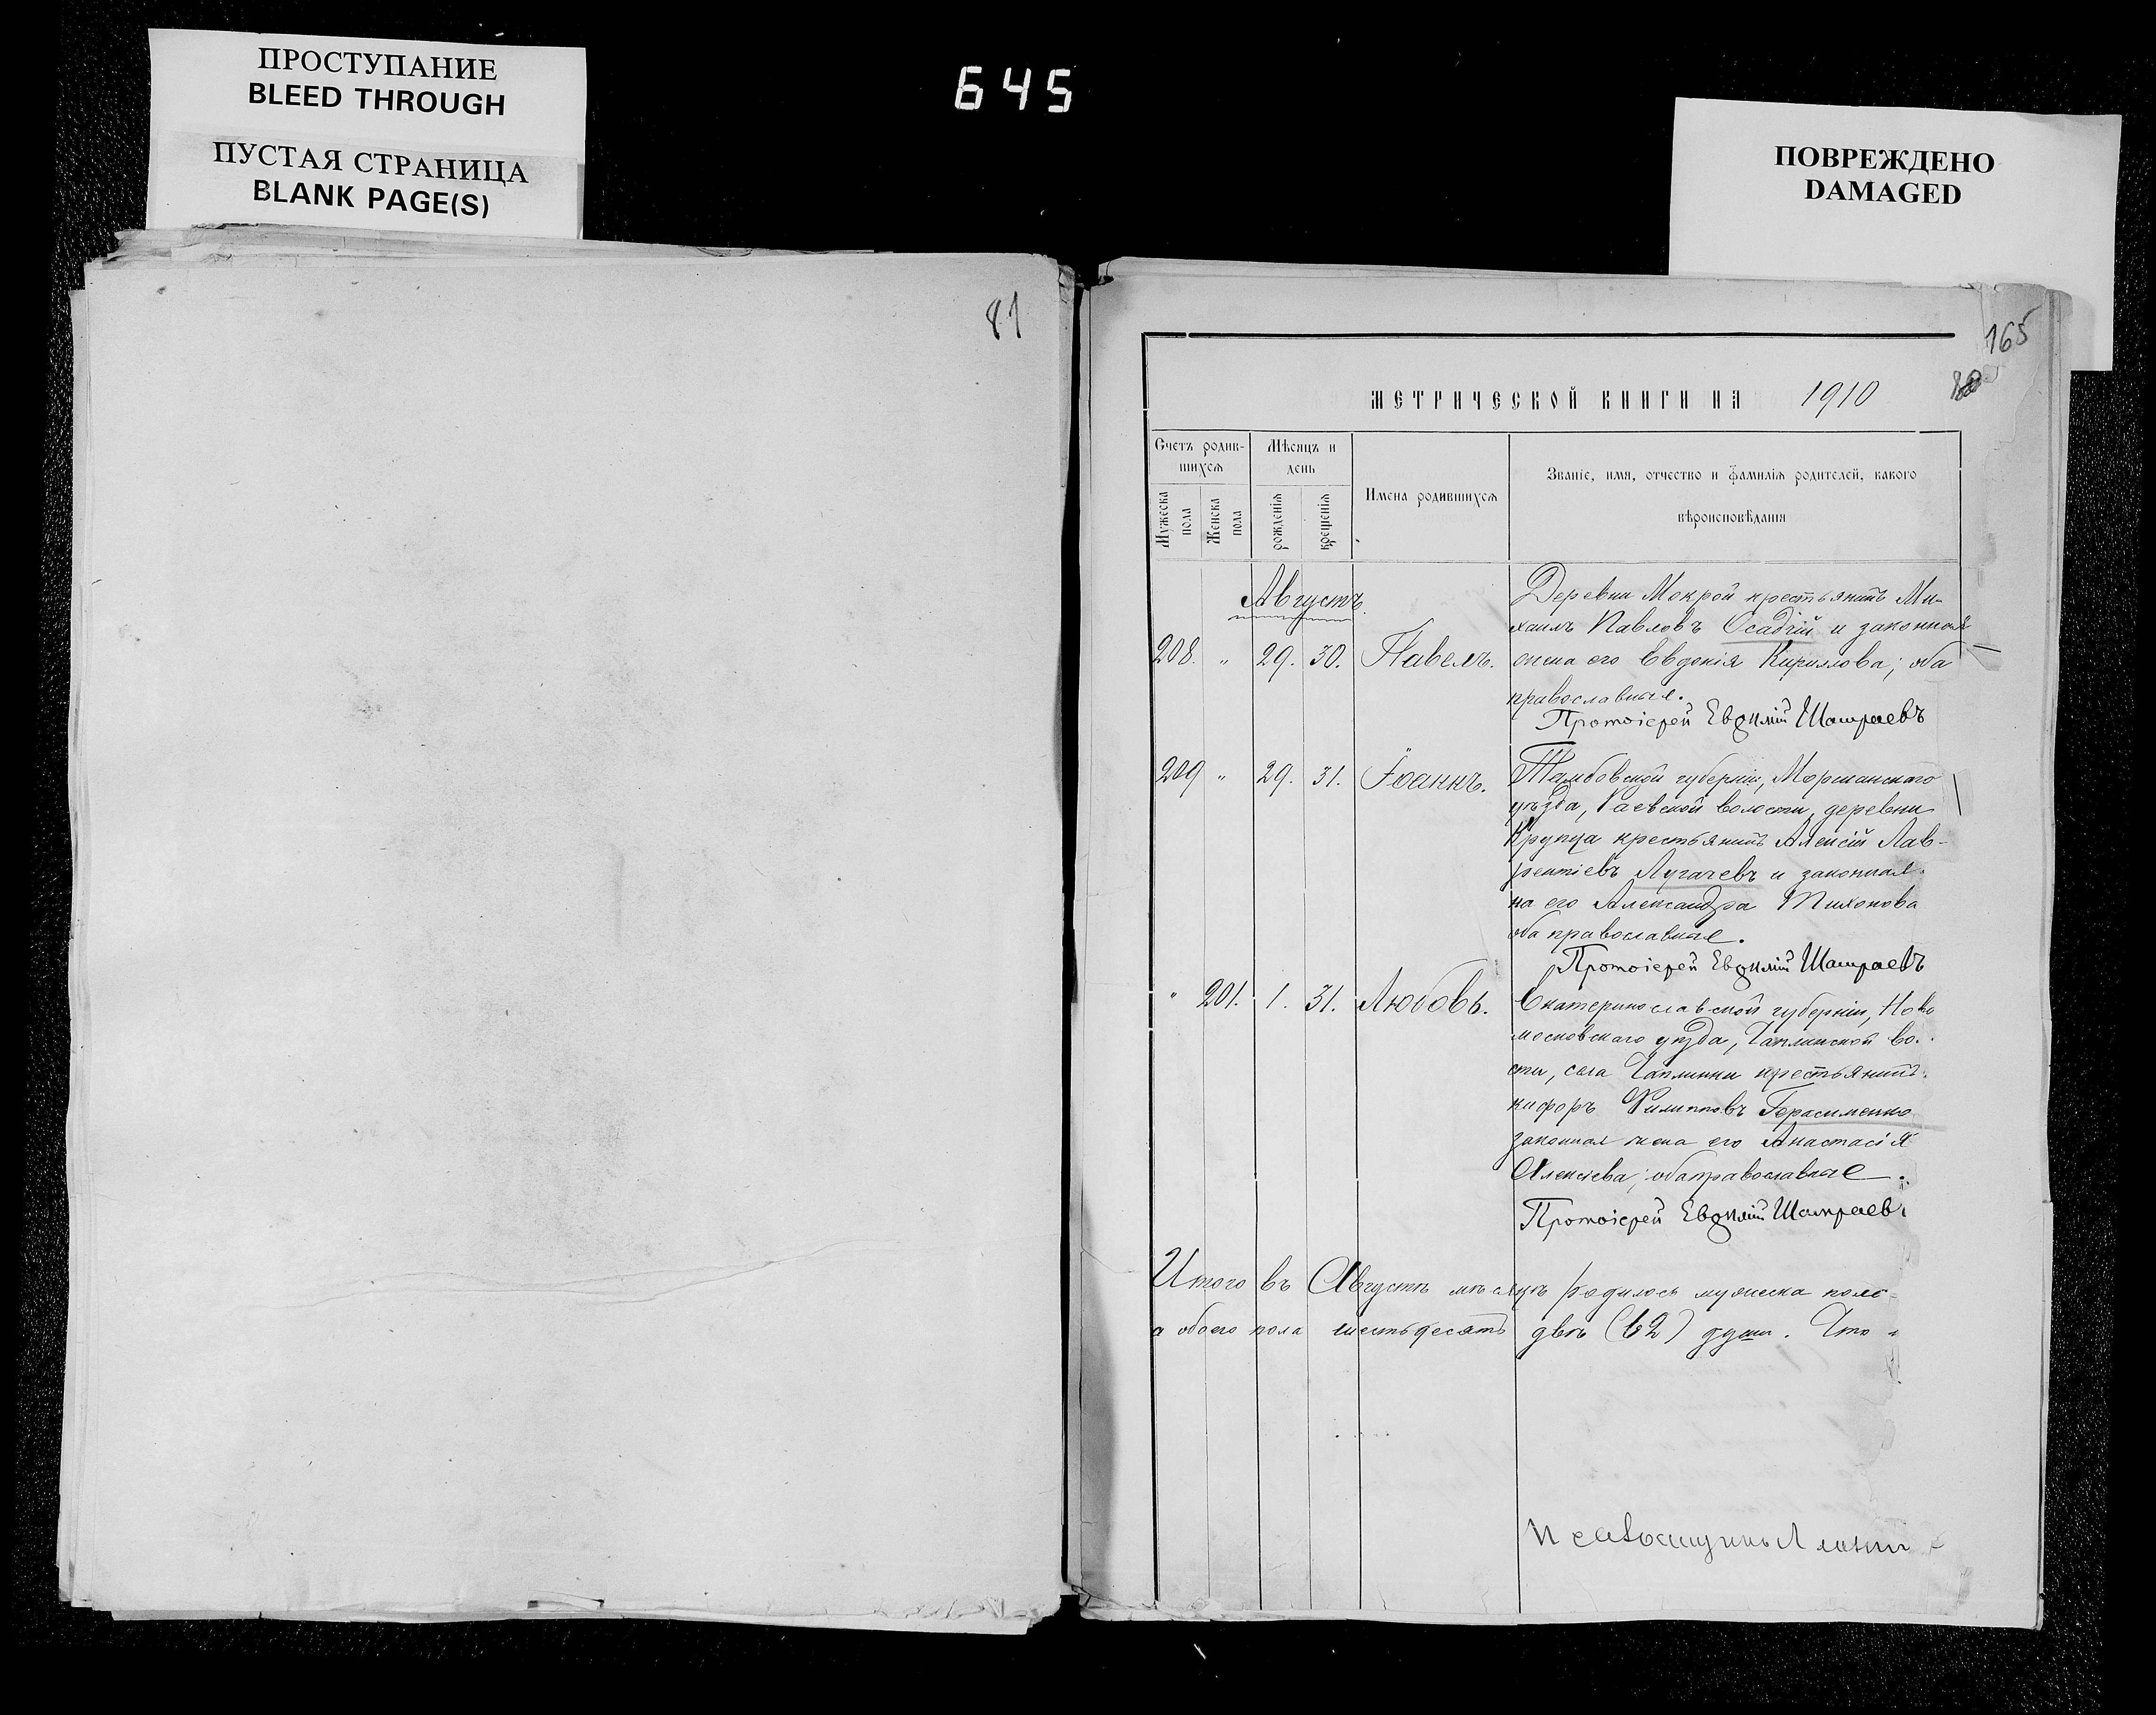 ПРОСТУПАНИЕ
BLEED THROUGH
ПУСТАЯ СТРАНИЦА
BLANK PAGE(S)
645
ПОВРЕЖДЕНО
DAMAGED
81
165
МЕТРИЧЕСКОЙ КНИГИ НА 1910
Счетъ родив-
шихся
Мѣсяцъ и
день
Имена родившихся
Званіе, имя, отчество и фамилія родителей, какого
вѣроисповѣданія
Мужеска
пола
Женска
пола
рожденія
крещенія
Августъ.
Деревни Мокрой крестьянинъ Ми-
хаилъ Павловъ Осадчій и законная
208. " 29. 30. Павелъ. жена его Евдокія Кириллова; оба
православные.
Протоіерей Евѳимій
209 " 29. 31. Іоаннъ. Тамбовской губерніи, Моршанскаго
уѣзда, Раевской волости, деревни
Крупца крестьянинъ Алексій Лав-
рентіевъ Лугачевъ и законная
на его Александра Тихонова
оба православные.
Протоіерей Евѳимій
" 201. 1. 31. Любовь. Екатеринославской губерніи, Ново
московскаго уѣзда, Чаплинской во
сти, села Чаплинки крестьянинъ
кифоръ Филипповъ Герасименко
законная жена его Анастасія
Алексіева; оба православные.
Протоіерей Евѳимій
Итого въ Августѣ мѣсяцѣ родилось мужеска поло
а обоего пола шестьдесятъ двѣ (62) души. Что